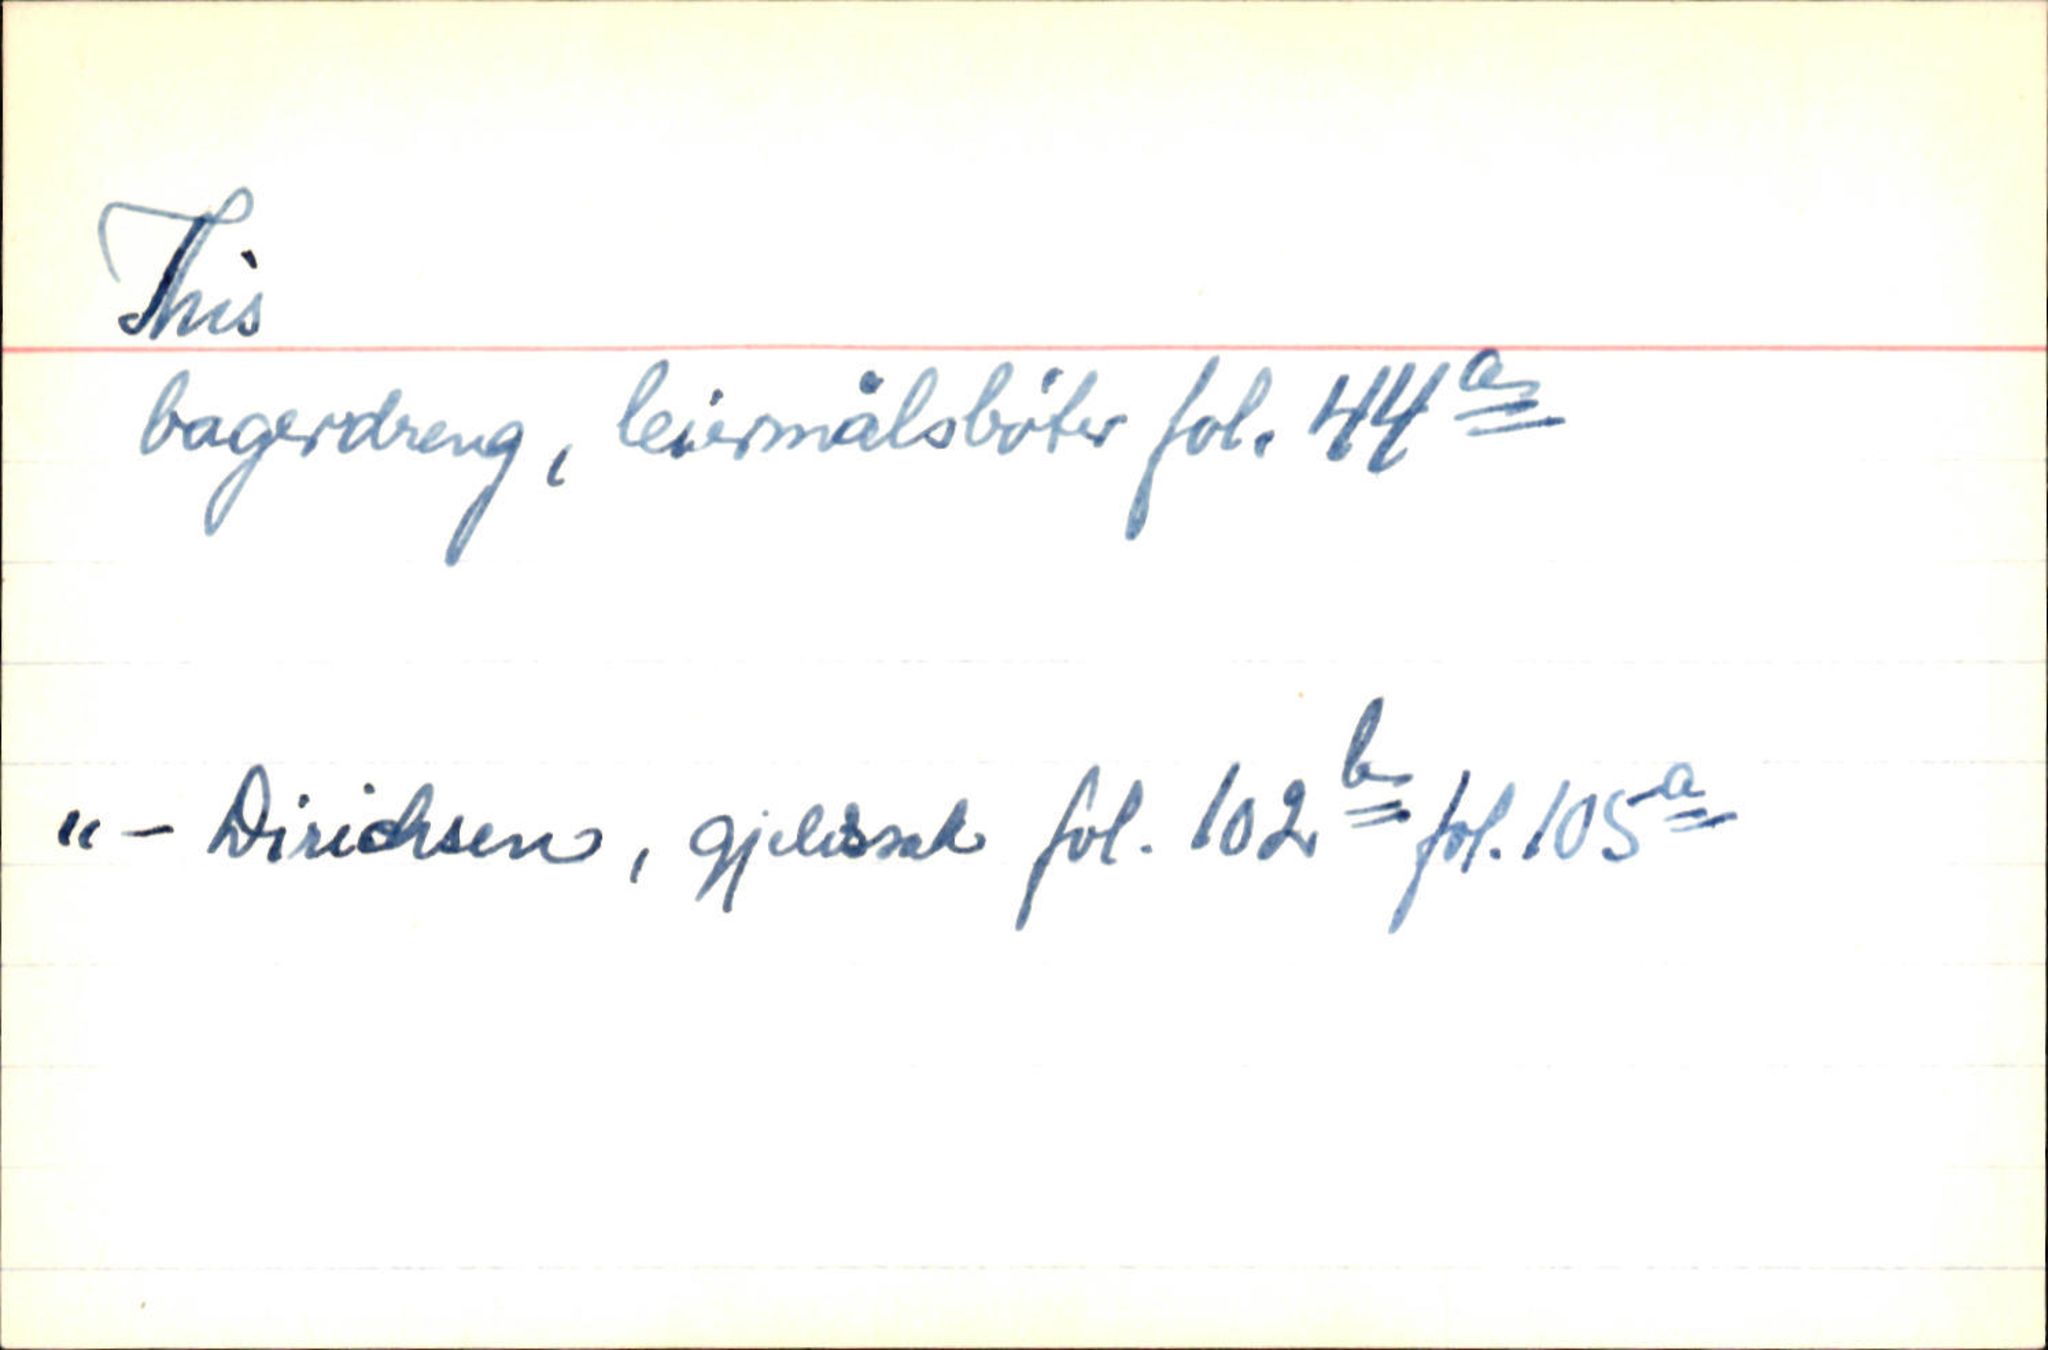 This
bagerdreng, leiermålsböter fol. 44a
"- Dirichsen, gjeldssak fol. 102b fol. 105a